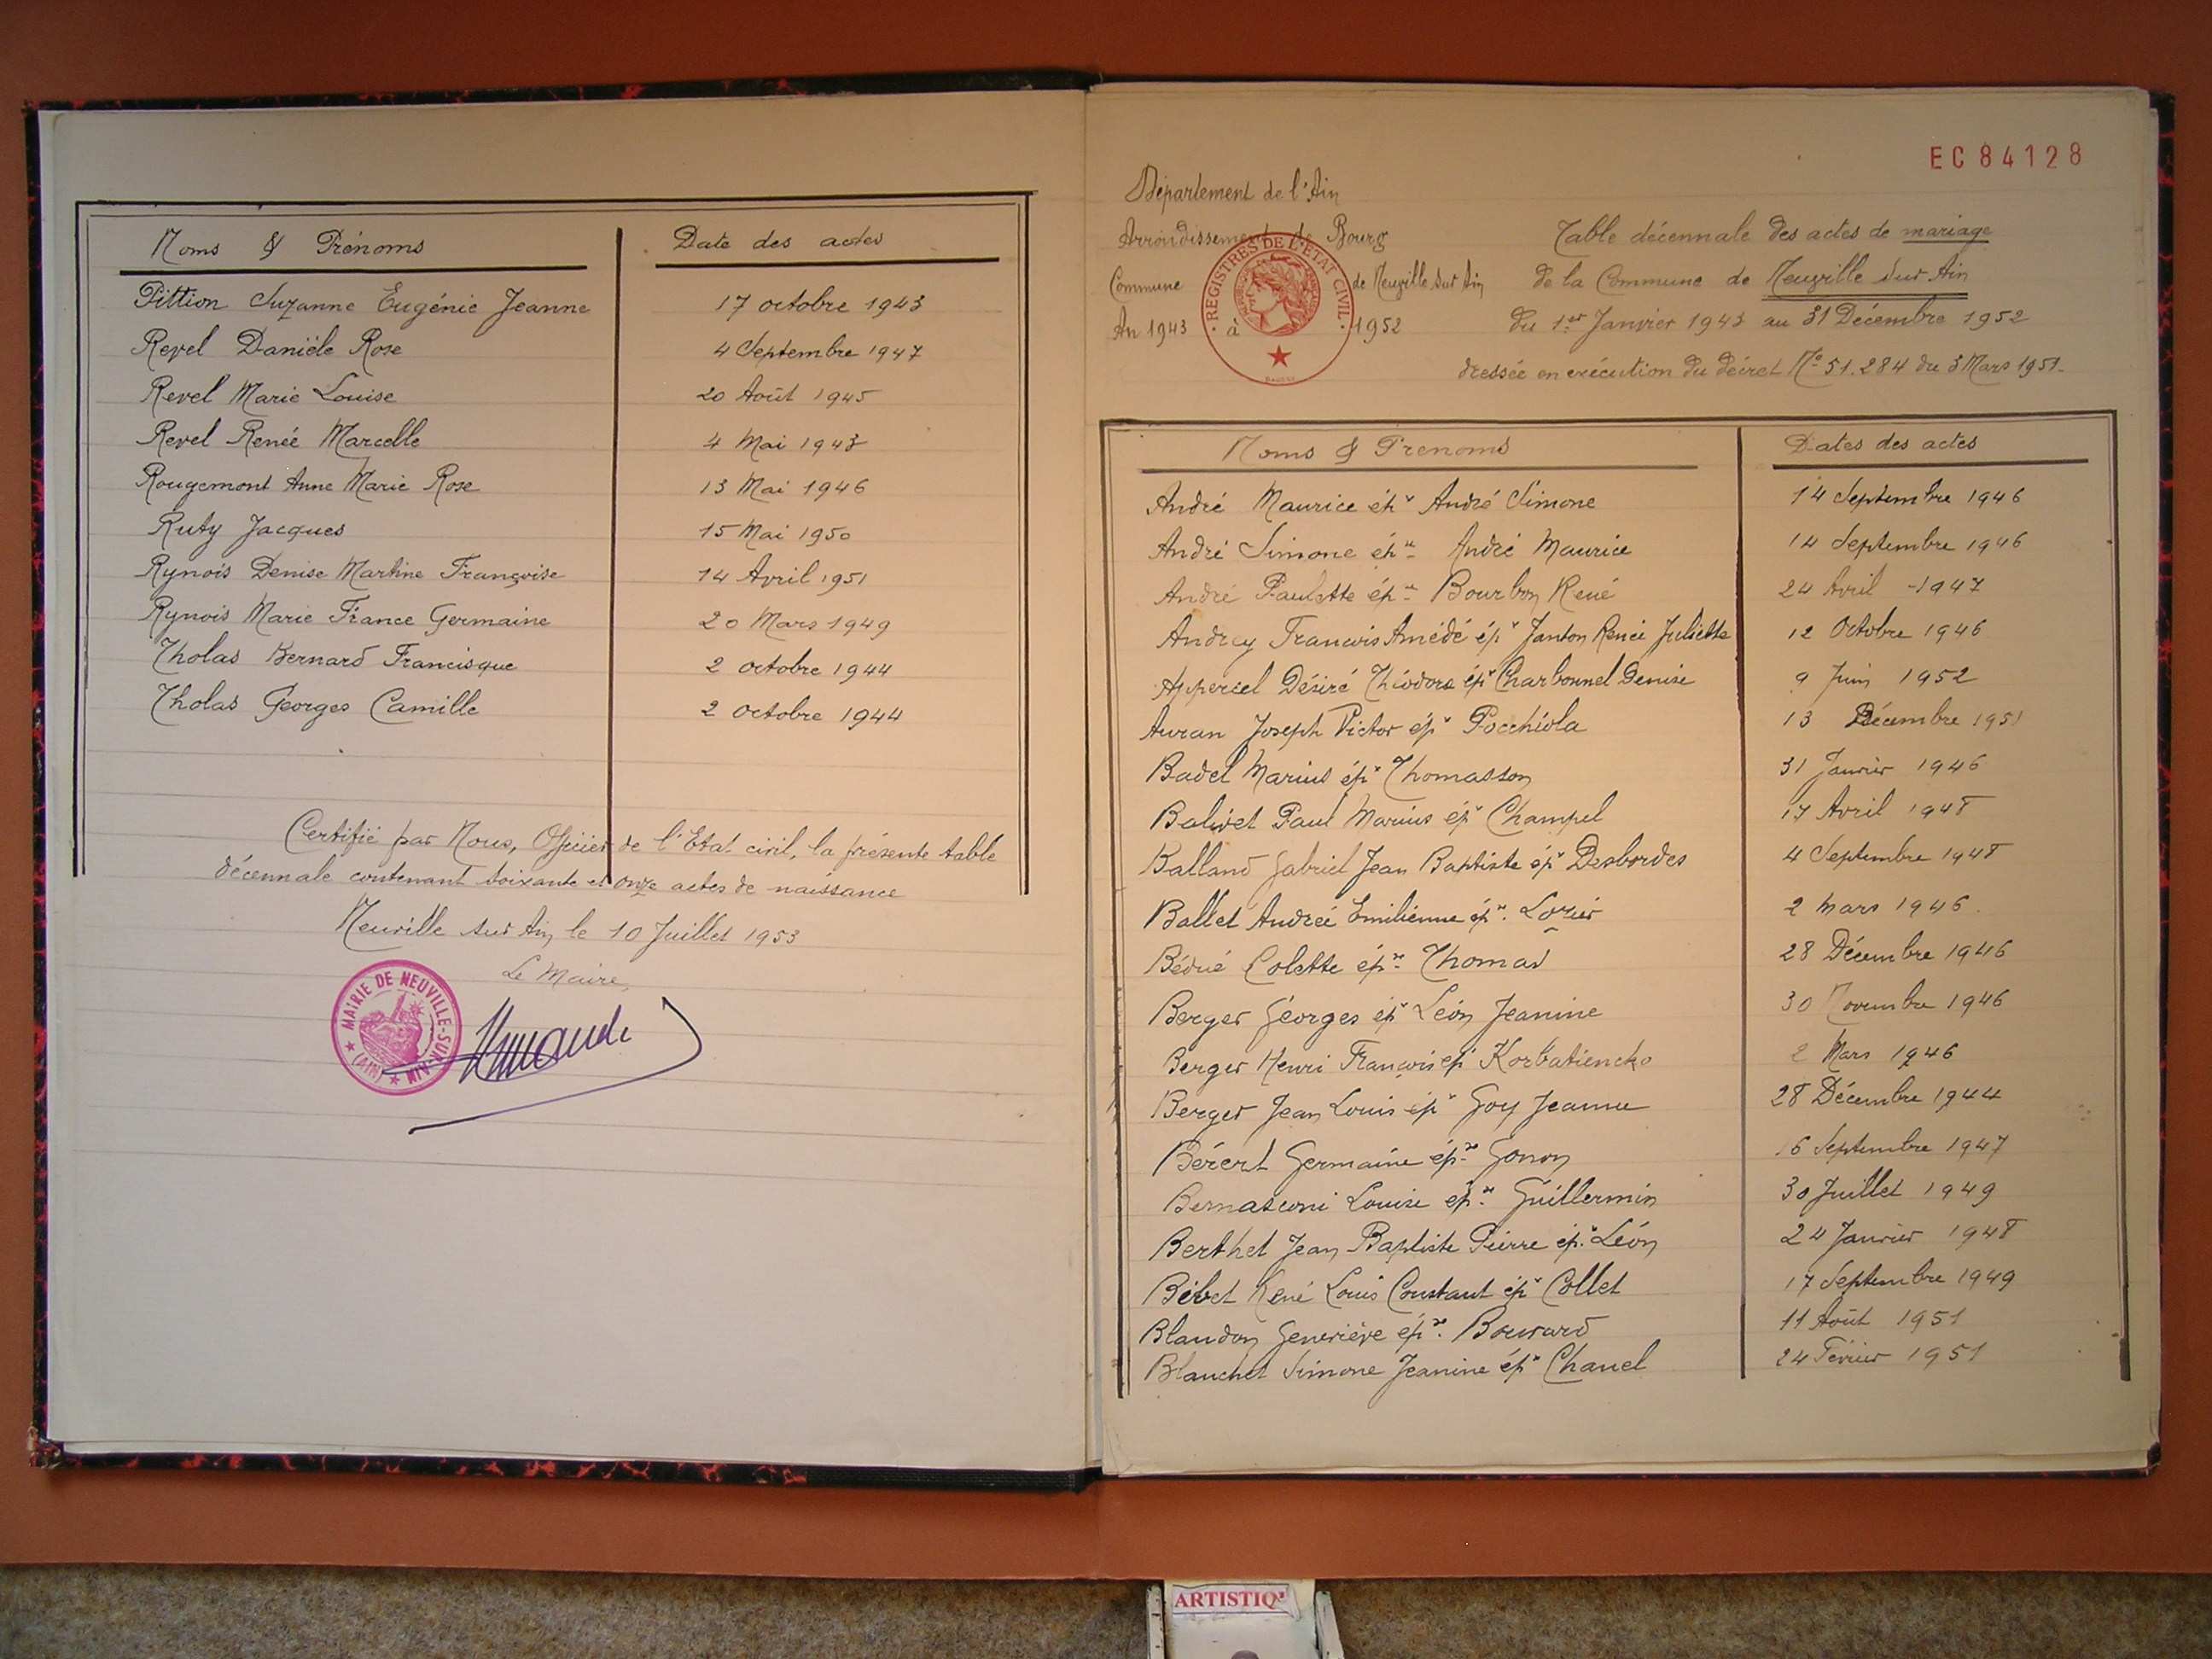 Noms & Prénoms Date des actes
Pittion Suzanne Eugénie Jeanne 17 octobre 1943
Revel Danièle Rose 4 Septembre 1947
Revel Marie Louise 20 Août 1945
Revel Renée Marcelle 4 Mai 1943
Rougemont Anne Marie Rose 13 Mai 1946
Ruty Jacques 15 Mai 1950
Rynois Denise Martine Françoise 14 Avril 1951
Rynois Marie France Germaine 20 Mars 1949
Tholas Bernard Francisque 2 octobre 1944
Tholas Georges Camille 2 octobre 1944
Certifié par Nous, Officier de l'Etat civil, la présente table
décennale contenant soixante et onze actes de naissance
Neuville sur Ain, le 10 Juillet 1953
Le Maire,
MAIRIE DE NEUVILLE-SUR-AIN
(AIN)
EC 84128
Département de l'Ain
Arrondissement de Bourg
Commune de Neuville sur Ain
An 1943 à 1952
REGISTRES DE L'ETAT CIVIL
Table décennale des actes de mariage
de la Commune de Neuville sur Ain
du 1er Janvier 1943 au 31 Décembre 1952
dressée en exécution du décret No 51.284 du 3 Mars 1951.
Noms & Prenoms Dates des actes
André Maurice épx André Simone 14 Septembre 1946
André Simone épse André Maurice 14 Septembre 1946
André Paulette épse Bourbon René 24 Avril -1947
Andrey Francois Amédé épx Janton Renée Juliette 12 Octobre 1946
Apperiel Désiré Théodore épx Charbonnel Denise 9 Juin 1952
Auran Joseph Victor épx Pocchiola 13 Décembre 1951
Badel Marius épx Thomasson 31 Janvier 1946
Balivet Paul Marius épx Champel 17 Avril 1948
Balland Gabriel Jean Baptiste épx Desbordes 4 Septembre 1948
Ballet Andrée Emilienne épse Lozier 2 Mars 1946.
Bédué Colette épse Thomas 28 Décembre 1946
Berger Georges épx Léon Jeanine 30 Novembre 1946
Berger Henri François épx Korbatiencko 2 Mars 1946
Berger Jean Louis épx Goy Jeanne 28 Décembre 1944
Bérert Germaine épse Gonon 6 Septembre 1947
Bernasconi Louise épse Guillermin 30 Juillet 1949
Berthet Jean Baptiste Pierre épx Léon 24 Janvier 1948
Bébet René Louis Constant épx Collet 17 Septembre 1949
Blandon Geneviève épse Bouvard 11 Août 1951
Blanchet Simone Jeanine épx Chanel 24 Février 1951
ARTISTIQ